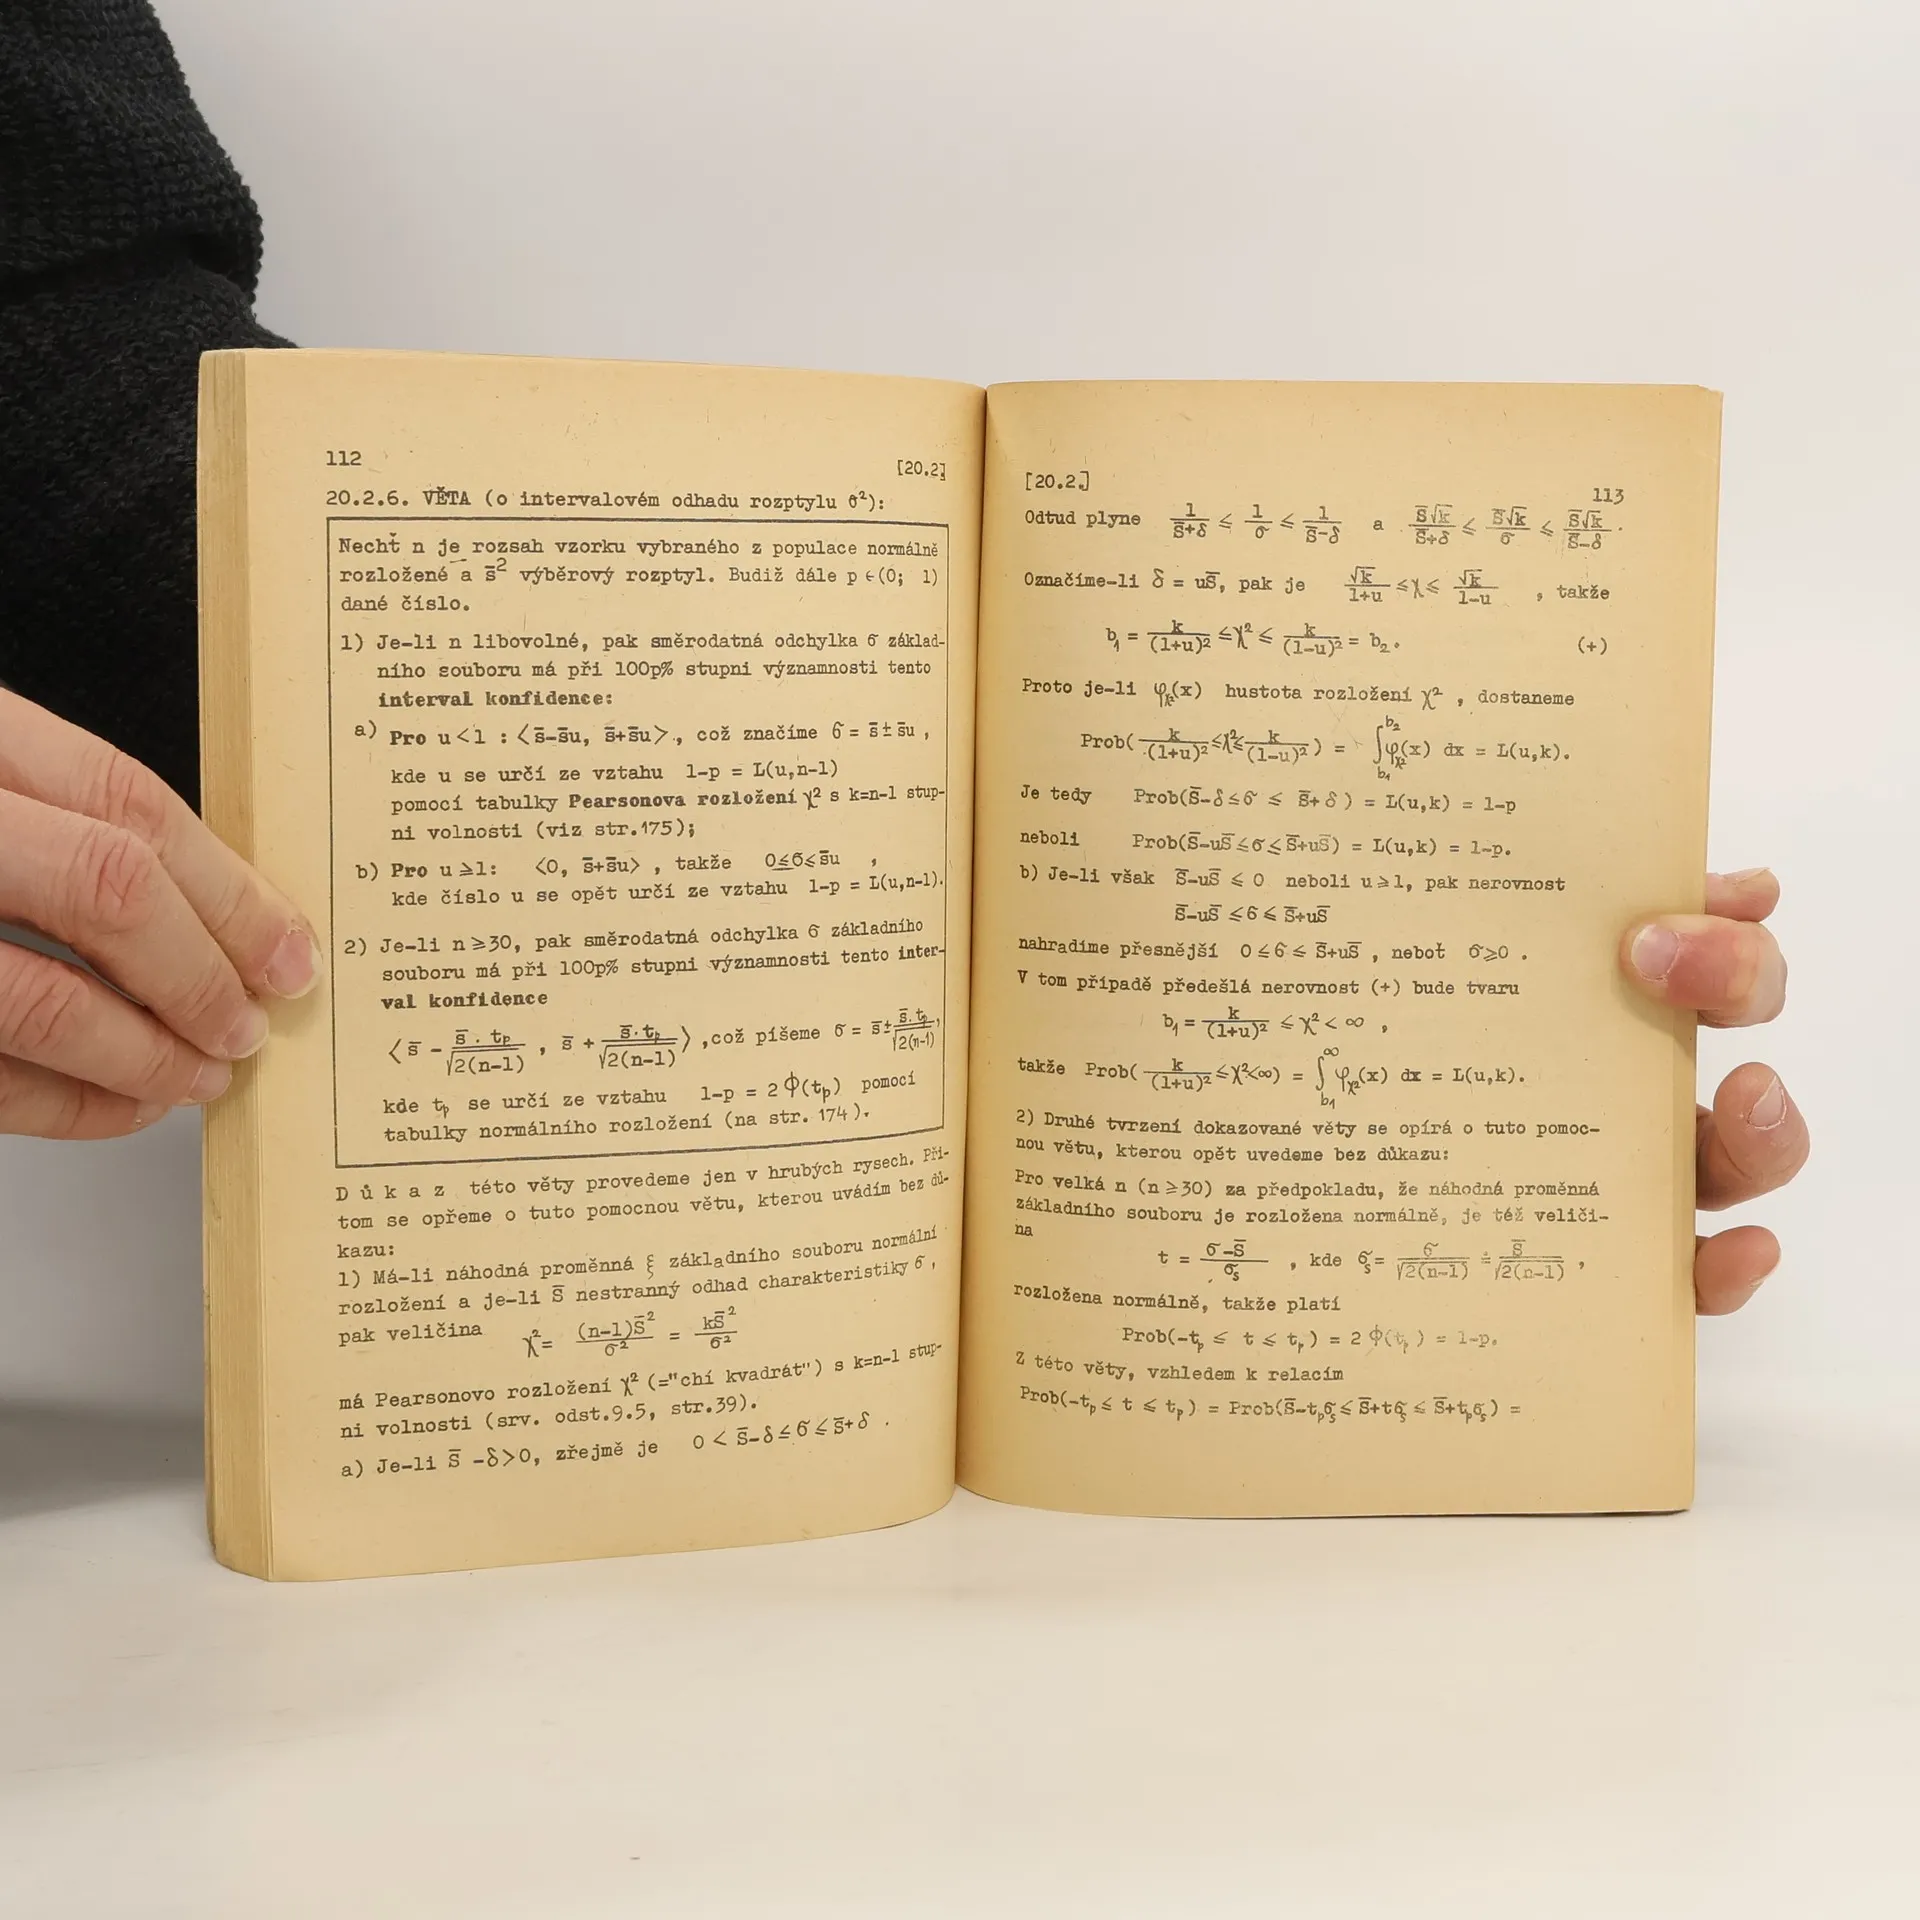 112
[20.2]
20.2.6. VĚTA (o intervalovém odhadu rozptylu σ²):
Nechť n je rozsah vzorku vybraného z populace normálně
rozložené a s̄² výběrový rozptyl. Budiž dále p ∈ (0; 1)
dané číslo.
1) Je-li n libovolné, pak směrodatná odchylka σ základ-
ního souboru má při 100p% stupni významnosti tento
interval konfidence:
a) Pro u<1 : ⟨s̄-s̄u, s̄+s̄u⟩, což značíme σ = s̄ ± s̄u ,
kde u se určí ze vztahu 1-p = L(u,n-1)
pomocí tabulky Pearsonova rozložení χ² s k=n-1 stup-
ni volnosti (viz str.175);
b) Pro u ≥ 1: ⟨0, s̄+s̄u⟩ , takže 0≤σ≤s̄u ,
kde číslo u se opět určí ze vztahu 1-p = L(u,n-1).
2) Je-li n ≥ 30, pak směrodatná odchylka σ základního
souboru má při 100p% stupni významnosti tento inter-
val konfidence
⟨ s̄ - s̄ . tₚ / √2(n-1) , s̄ + s̄ . tₚ / √2(n-1) ⟩ ,což píšeme σ = s̄ ± s̄. tₚ / √2(n-1) ,
kde tₚ se určí ze vztahu 1-p = 2 Φ(tₚ) pomocí
tabulky normálního rozložení (na str. 174).
D ů k a z této věty provedeme jen v hrubých rysech. Při-
tom se opřeme o tuto pomocnou větu, kterou uvádím bez dů-
kazu:
1) Má-li náhodná proměnná ξ základního souboru normální
rozložení a je-li S̄ nestranný odhad charakteristiky σ ,
pak veličina χ² = (n-1)S̄² / σ² = kS̄² / σ²
má Pearsonovo rozložení χ² (="chí kvadrát") s k=n-1 stup-
ni volnosti (srv. odst.9.5, str.39).
a) Je-li S̄ -δ>0, zřejmě je 0 < S̄-δ ≤ σ ≤ S̄+δ .
[20.2]
113
Odtud plyne 1 / S̄+δ ≤ 1 / σ ≤ 1 / S̄-δ a S̄√k / S̄+δ ≤ S̄√k / σ ≤ S̄√k / S̄-δ .
Označíme-li δ = uS̄, pak je √k / 1+u ≤ χ ≤ √k / 1-u , takže
b₁ = k / (1+u)² ≤ χ² ≤ k / (1-u)² = b₂. (+)
Proto je-li φχ²(x) hustota rozložení χ² , dostaneme
Prob( k / (1+u)² ≤ χ² ≤ k / (1-u)² ) = ∫ b₁ b₂ φχ²(x) dx = L(u,k).
Je tedy Prob(S̄-δ ≤ σ ≤ S̄+δ ) = L(u,k) = 1-p
neboli Prob(S̄-uS̄ ≤ σ ≤ S̄+uS̄) = L(u,k) = 1-p.
b) Je-li však S̄-uS̄ ≤ 0 neboli u ≥ 1, pak nerovnost
S̄-uS̄ ≤ σ ≤ S̄+uS̄
nahradíme přesnější 0 ≤ σ ≤ S̄+uS̄ , neboť σ ≥ 0 .
V tom případě předešlá nerovnost (+) bude tvaru
b₁ = k / (1+u)² ≤ χ² < ∞ ,
takže Prob( k / (1+u)² ≤ χ² < ∞) = ∫ b₁ ∞ φχ²(x) dx = L(u,k).
2) Druhé tvrzení dokazované věty se opírá o tuto pomoc-
nou větu, kterou opět uvedeme bez důkazu:
Pro velká n (n ≥ 30) za předpokladu, že náhodná proměnná
základního souboru je rozložena normálně, je též veliči-
na
t = σ -S̄ / σₛ , kde σₛ = σ / √2(n-1) ≐ S̄ / √2(n-1) ,
rozložena normálně, takže platí
Prob(-tₚ ≤ t ≤ tₚ) = 2 Φ(tₚ) = 1-p.
Z této věty, vzhledem k relacím
Prob(-tₚ ≤ t ≤ tₚ) = Prob(S̄-tₚσₛ ≤ S̄+tσₛ ≤ S̄+tₚσₛ) =